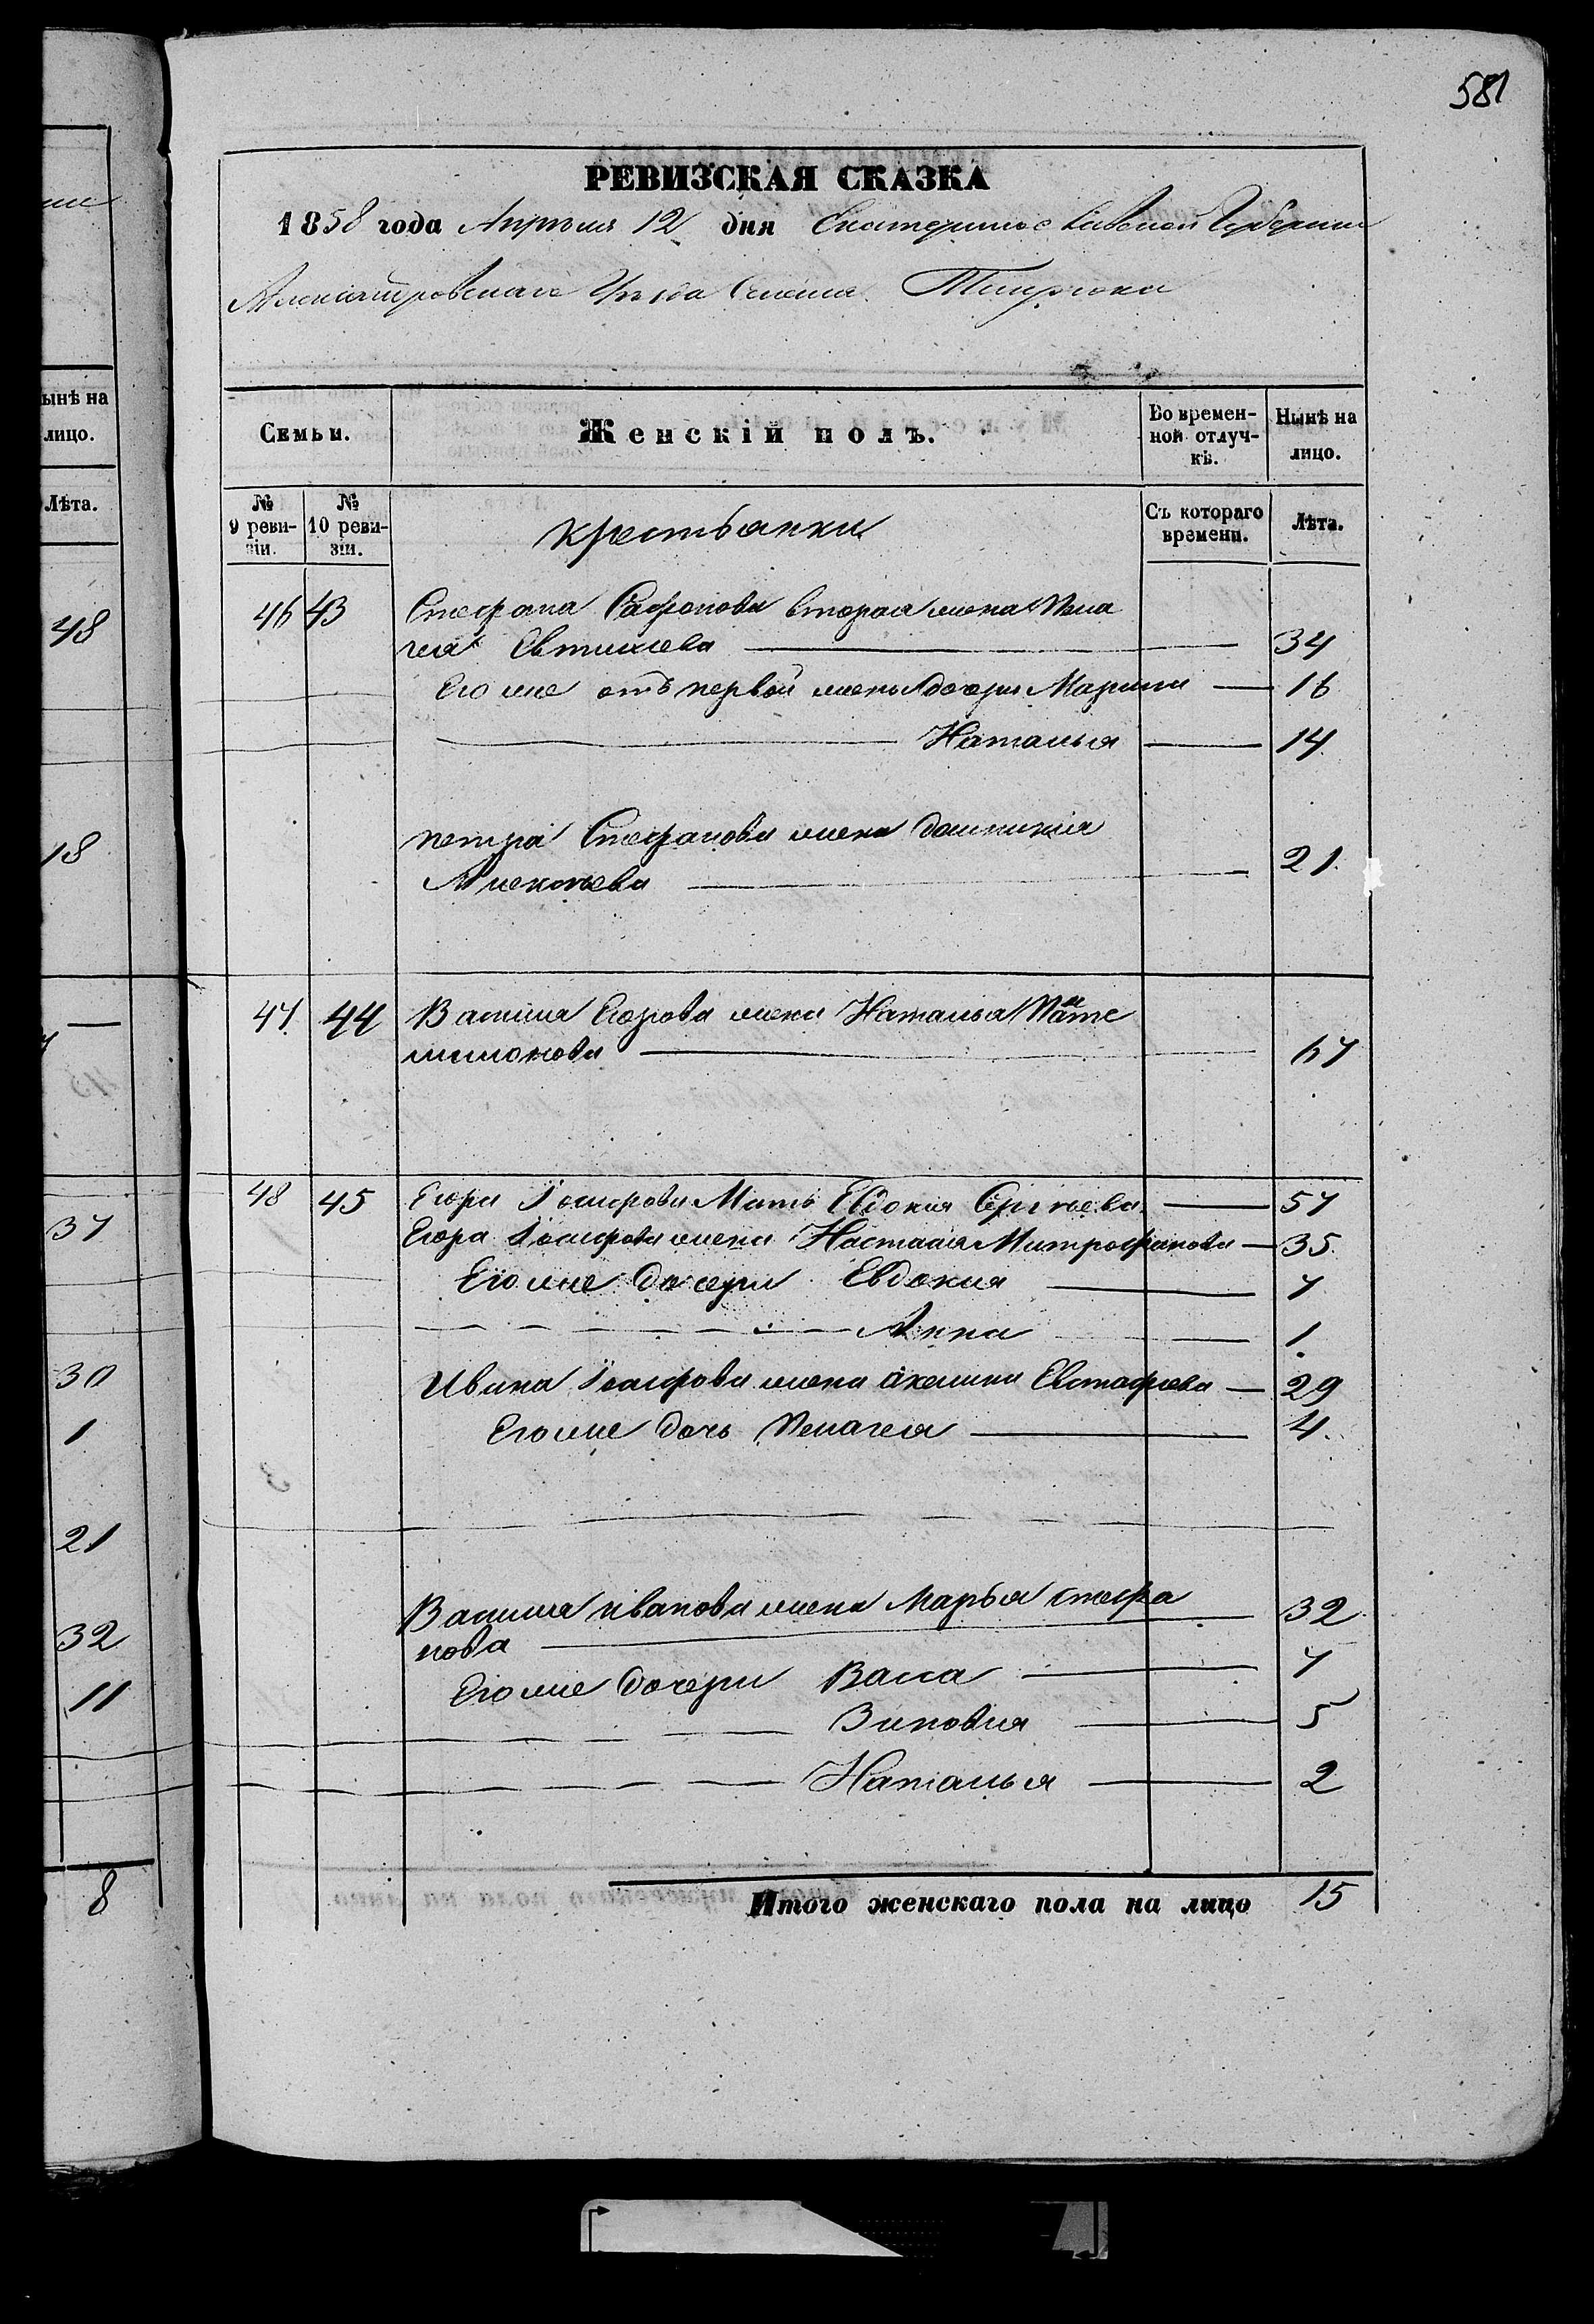 581
РЕВИЗСКАЯ СКАЗКА
1858 года Апреля 12 дня Екатеринославской Губернии
Александровскаго Уезда Селенія Темрюка
ынѣ на
лицо.
Лѣта.
48
18
37
30
1
21
32
11
8
Семьи.
Женскій полъ.
Во времен-
ной отлуч-
кѣ.
Нынѣ на
лицо.
№
9 реви-
зіи.
№
10 реви-
зіи.
крестьянки
Съ котораго
времени.
Лѣта.
46 43 Стефана Сафонова вторая жена Пела
гея Евтихіева 34
Его же отъ первой жены дочери Марина 16
Наталья 14
Петра Стефанова жена Домникія
Алексѣева 21
47 44 Василія Егорова жена Наталья
67
48 45 Егора Іосифова Мать Евдокия Сергѣева 57
Егора Іосифова жена Настасія Митрофанова 35
Его же дочери Евдокия 7
Анна 1
Ивана Іосифова жена Акелина Евстафіева 29
Его же дочь Пелагея 4
Василия Иванова жена Марья Стефа 32
нова
Его же дочери Васса 7
Зиновия 5
Наталья 2
Итого женскаго пола на лицо 15